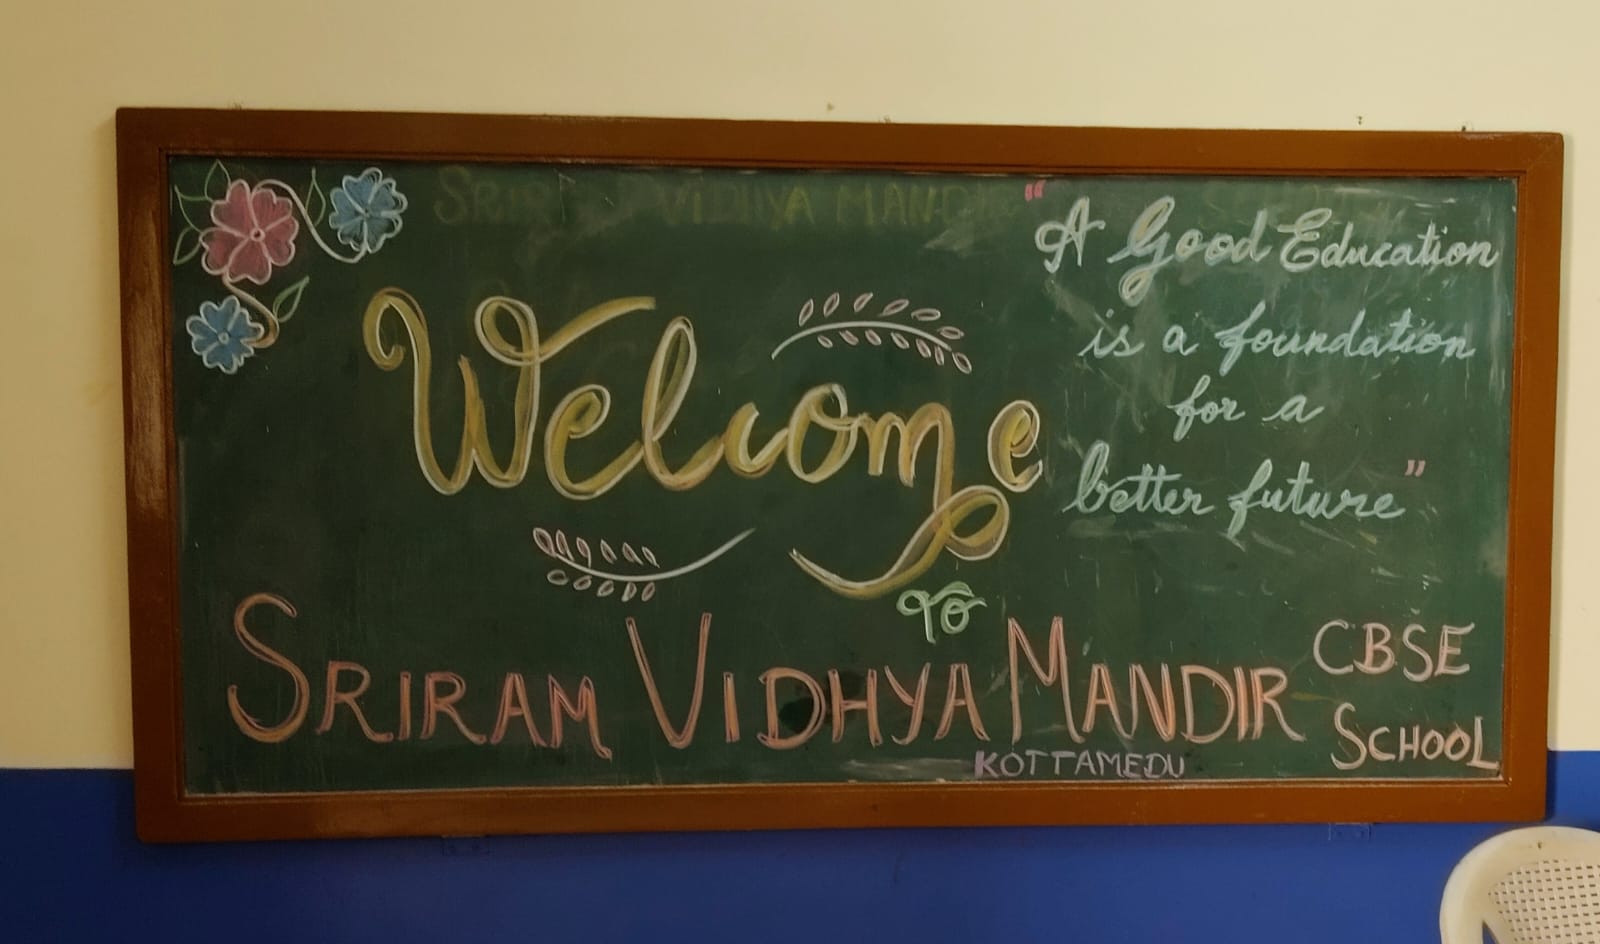 SRIRAM VIDHYA MANDIR
Welcome
to
SRIRAM VIDHYA MANDIR
CBSE
SCHOOL
KOTTAMEDU
"A Good Education
is a foundation
for a
better future"